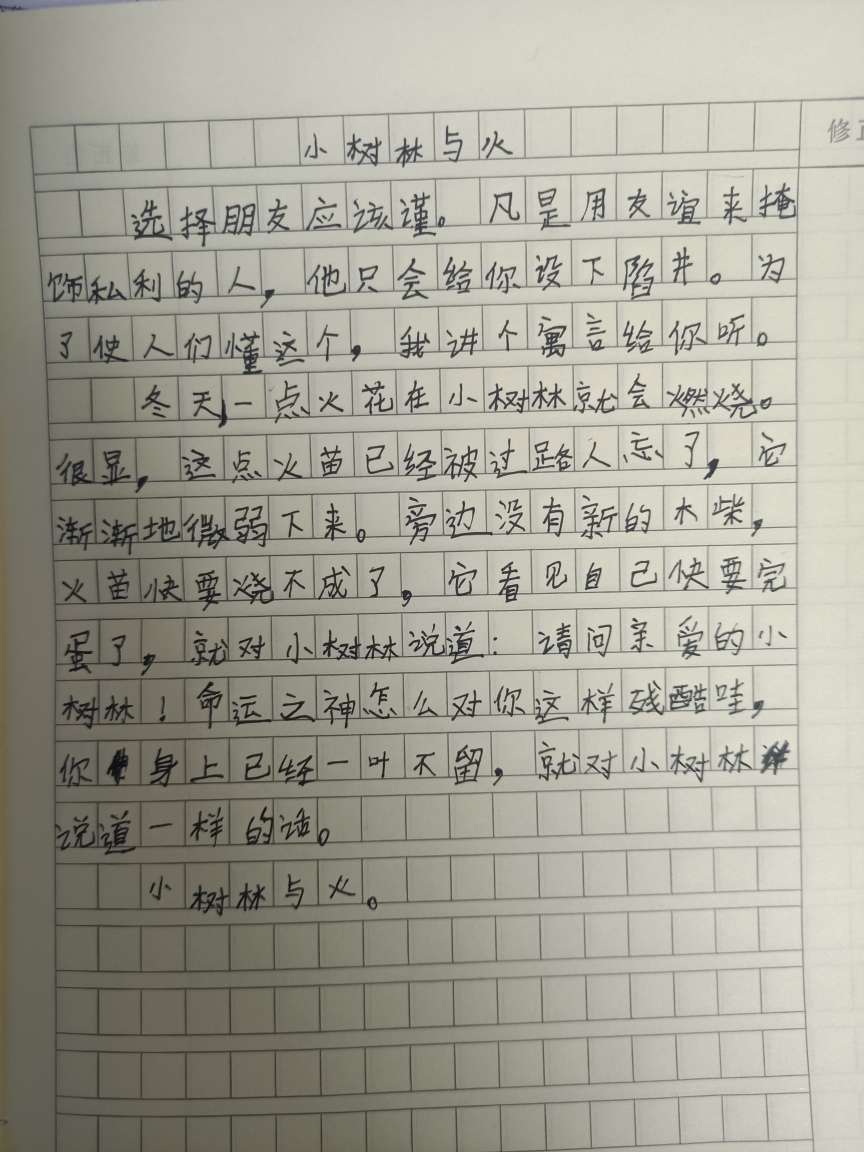 小树林与火
修正
选择朋友应该谨。凡是用友谊来掩
饰私利的人，他只会给你设下陷井。为
了使人们懂这个，我讲个寓言给你听。
冬天，一点火花在小树林就会燃烧。
很显，这点火苗已经被过路人忘了，它
渐渐地微弱下来。旁边没有新的木柴，
火苗快要烧不成了，它看见自己快要完
蛋了，就对小树林说道：请问亲爱的小
树林！命运之神怎么对你这样残酷哇，
你身上已经一叶不留，就对小树林
说道一样的话。
小树林与火。